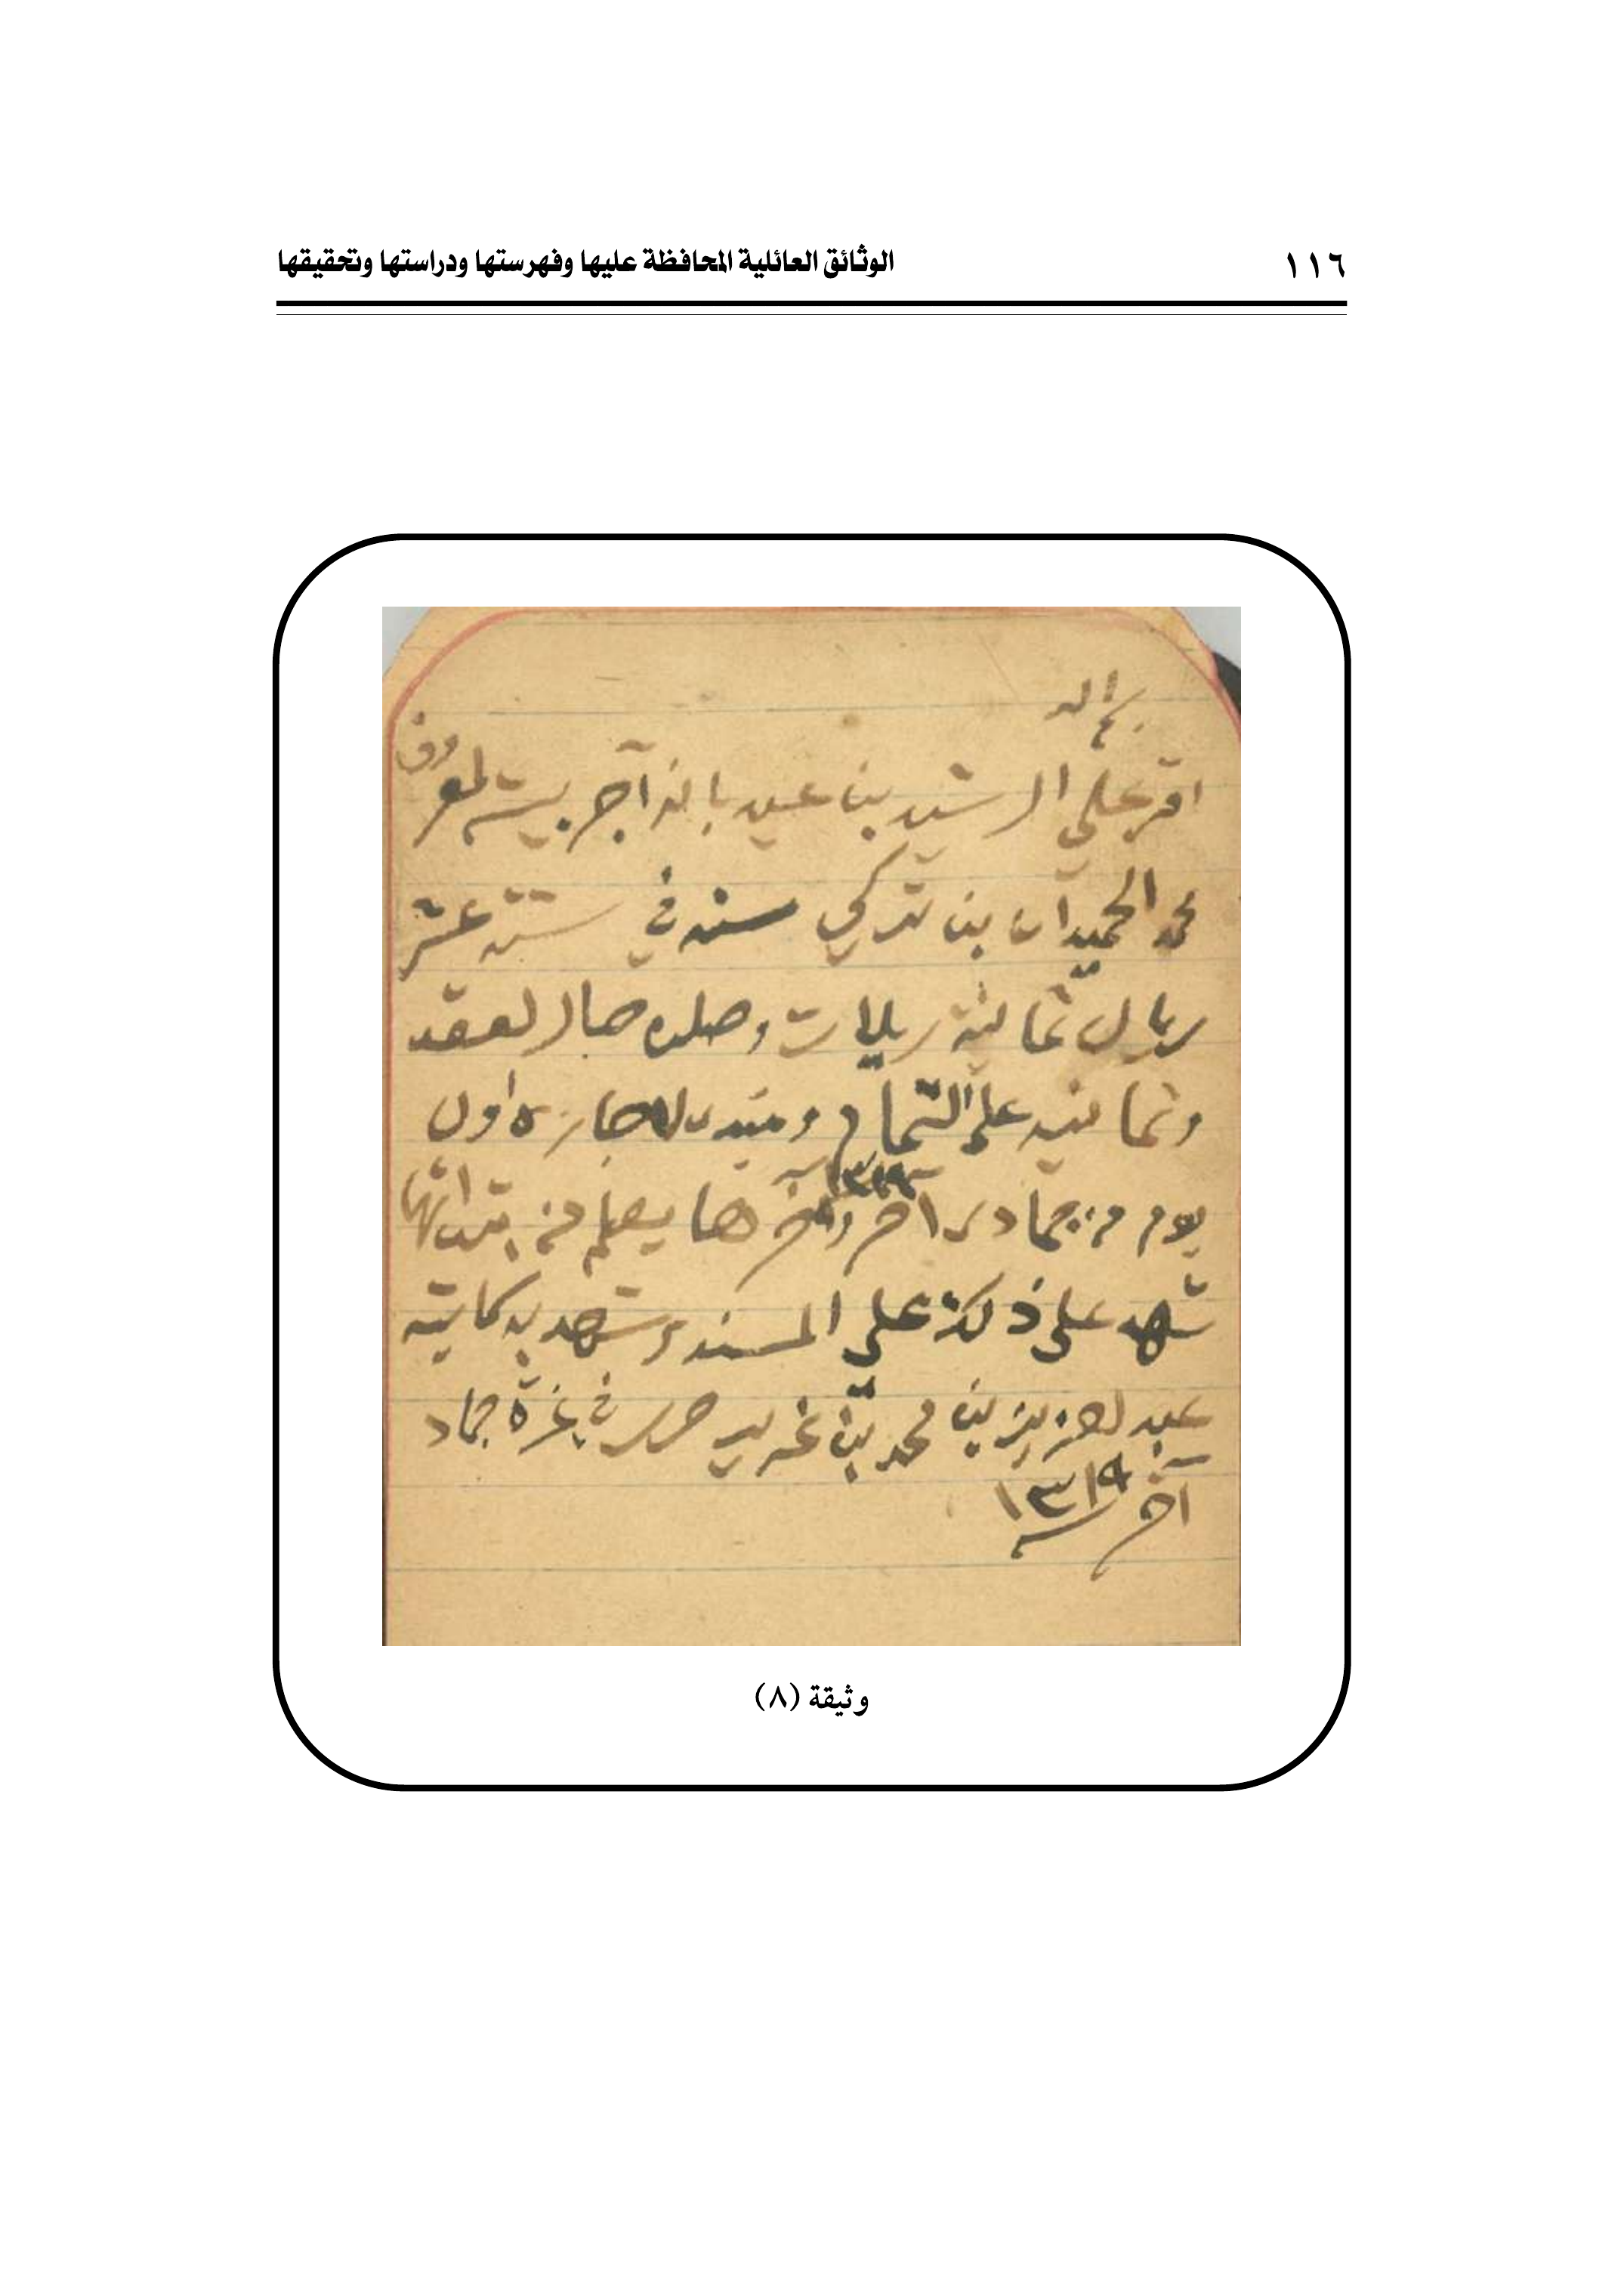 ١١٦ الوثائق العائلية المحافظة عليها وفهرستها ودراستها وتحقيقها
بسم الله
اقر علي الرشيد بن عيد بانه آجر بيته المعروف
محمد الحميدان بن تركي سنه في ستة عشر
ريال ثمانية ريلات وصلنه حال العقد
وثمانيه على التمام ومبتدى الاجاره اول
يوم من جمادى اخر ١٣١٩ وآخرها يعلم من ابتدائها
شهد على ذلك علي المسند وشهد به كاتبه
عبد العزيز بن محمد بن غرير حرر في غرة جماد
آخر ١٣١٩
وثيقة (٨)